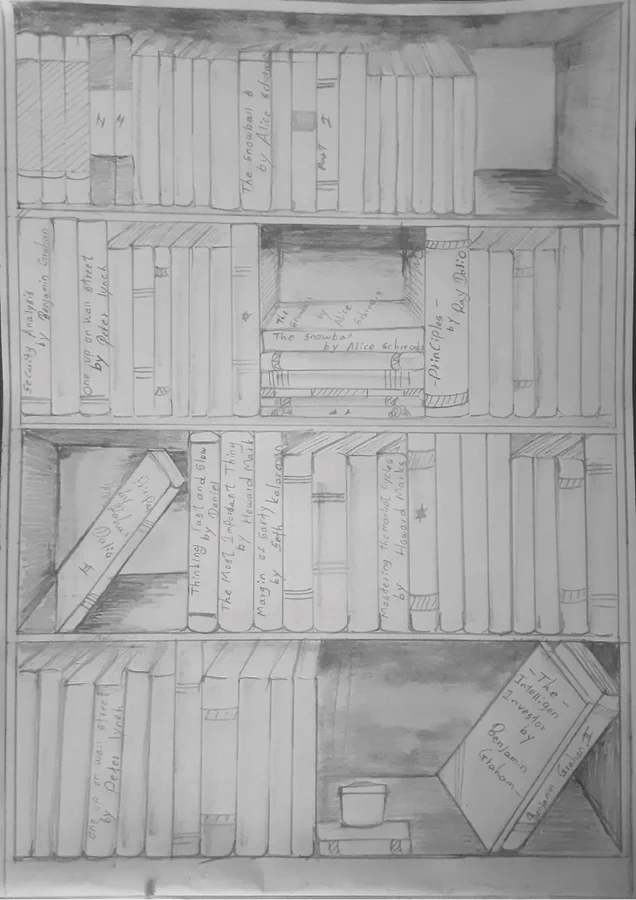 The Snowball b
by Alice Schroede
Part I
Security Analysis
by Benjamin Graham
one up on wall street
by Peter lynch
The Snowball
by Alice Schroede
The Snowbal
by Alice Schroede
-Principles-
by Ray Dalio
Thinking fast and Slow
by Daniel
The Most Important Thing
by Howard Mark
Margin of Safty
by Seth Kalarman
Mastering the market Cycles
by Howard Marks
one up on wall street
by Peter lynch
-The-
Intelligen
Investor
by
Benjamin
Graham-
Benjamin Graham I